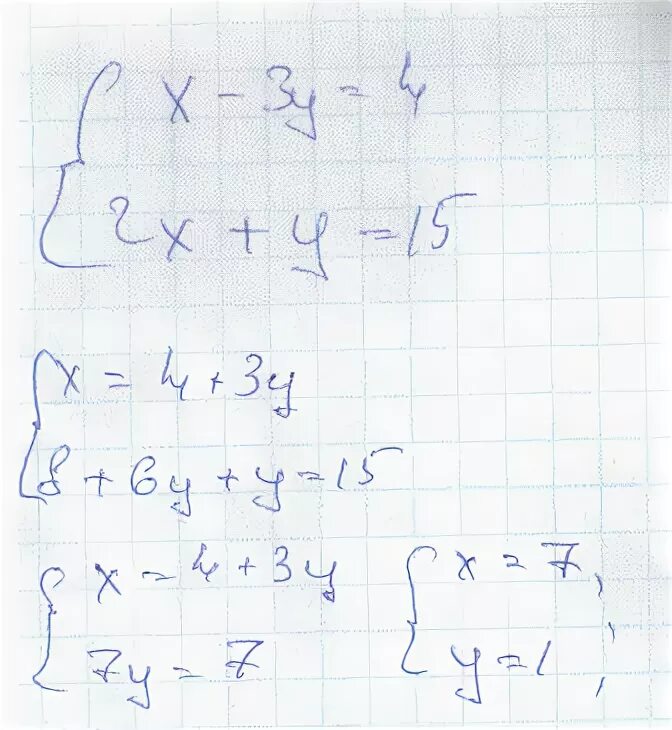 x - 3y = 4
2x + y = 15
x = 4 + 3y
8 + 6y + y = 15
x = 4 + 3y
7y = 7
x = 7,
y = 1,